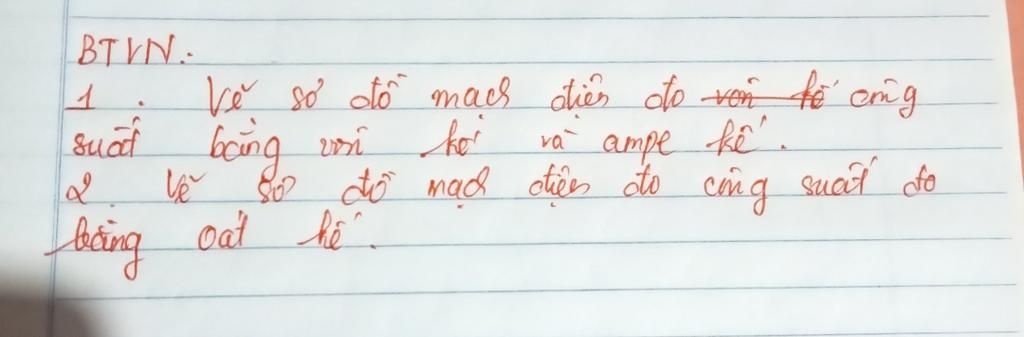 BTVN:
1. Vẽ sơ đồ mạch điện đo vôn kế công
suất bằng vôn kế và ampe kế.
2. Vẽ sơ đồ mạch điện đo công suất đo
bằng oát kế.